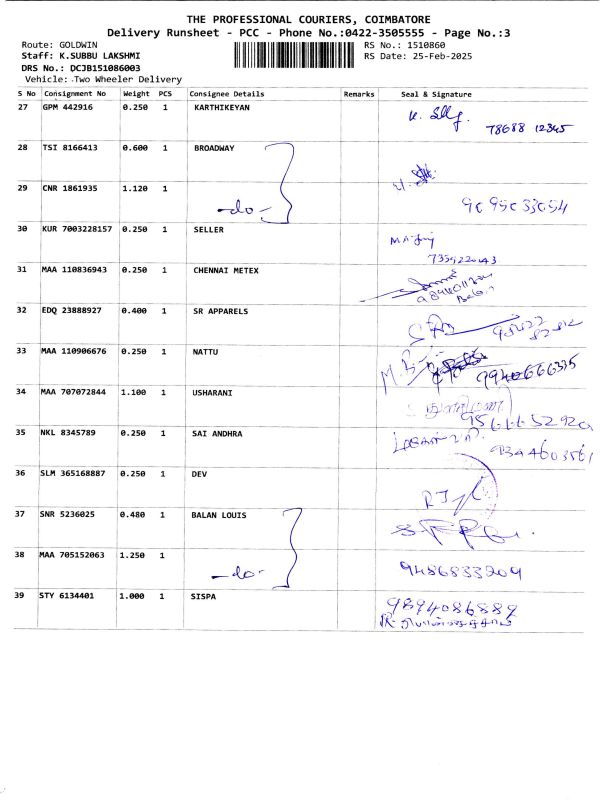 THE PROFESSIONAL COURIERS, COIMBATORE
Delivery Runsheet - PCC - Phone No.:0422-3505555 - Page No.:3
Route: GOLDWIN RS No.: 1510860
Staff: K.SUBBU LAKSHMI RS Date: 25-Feb-2025
DRS No.: DCJB151086003
Vehicle: Two Wheeler Delivery
S No Consignment No Weight PCS Consignee Details Remarks Seal & Signature
27 GPM 442916 0.250 1 KARTHIKEYAN
78688 12345
28 TSI 8166413 0.600 1 BROADWAY
29 CNR 1861935 1.120 1 -do-
9095033054
30 KUR 7003228157 0.250 1 SELLER
31 MAA 110836943 0.250 1 CHENNAI METEX
32 EDQ 23888927 0.400 1 SR APPARELS
33 MAA 110906676 0.250 1 NATTU
9940666335
34 MAA 707072844 1.100 1 USHARANI
35 NKL 8345789 0.250 1 SAI ANDHRA
9344603561
36 SLM 365168887 0.250 1 DEV
37 SNR 5236025 0.480 1 BALAN LOUIS
38 MAA 705152063 1.250 1 -do-
9486833209
39 STY 6134401 1.000 1 SISPA
9894086889